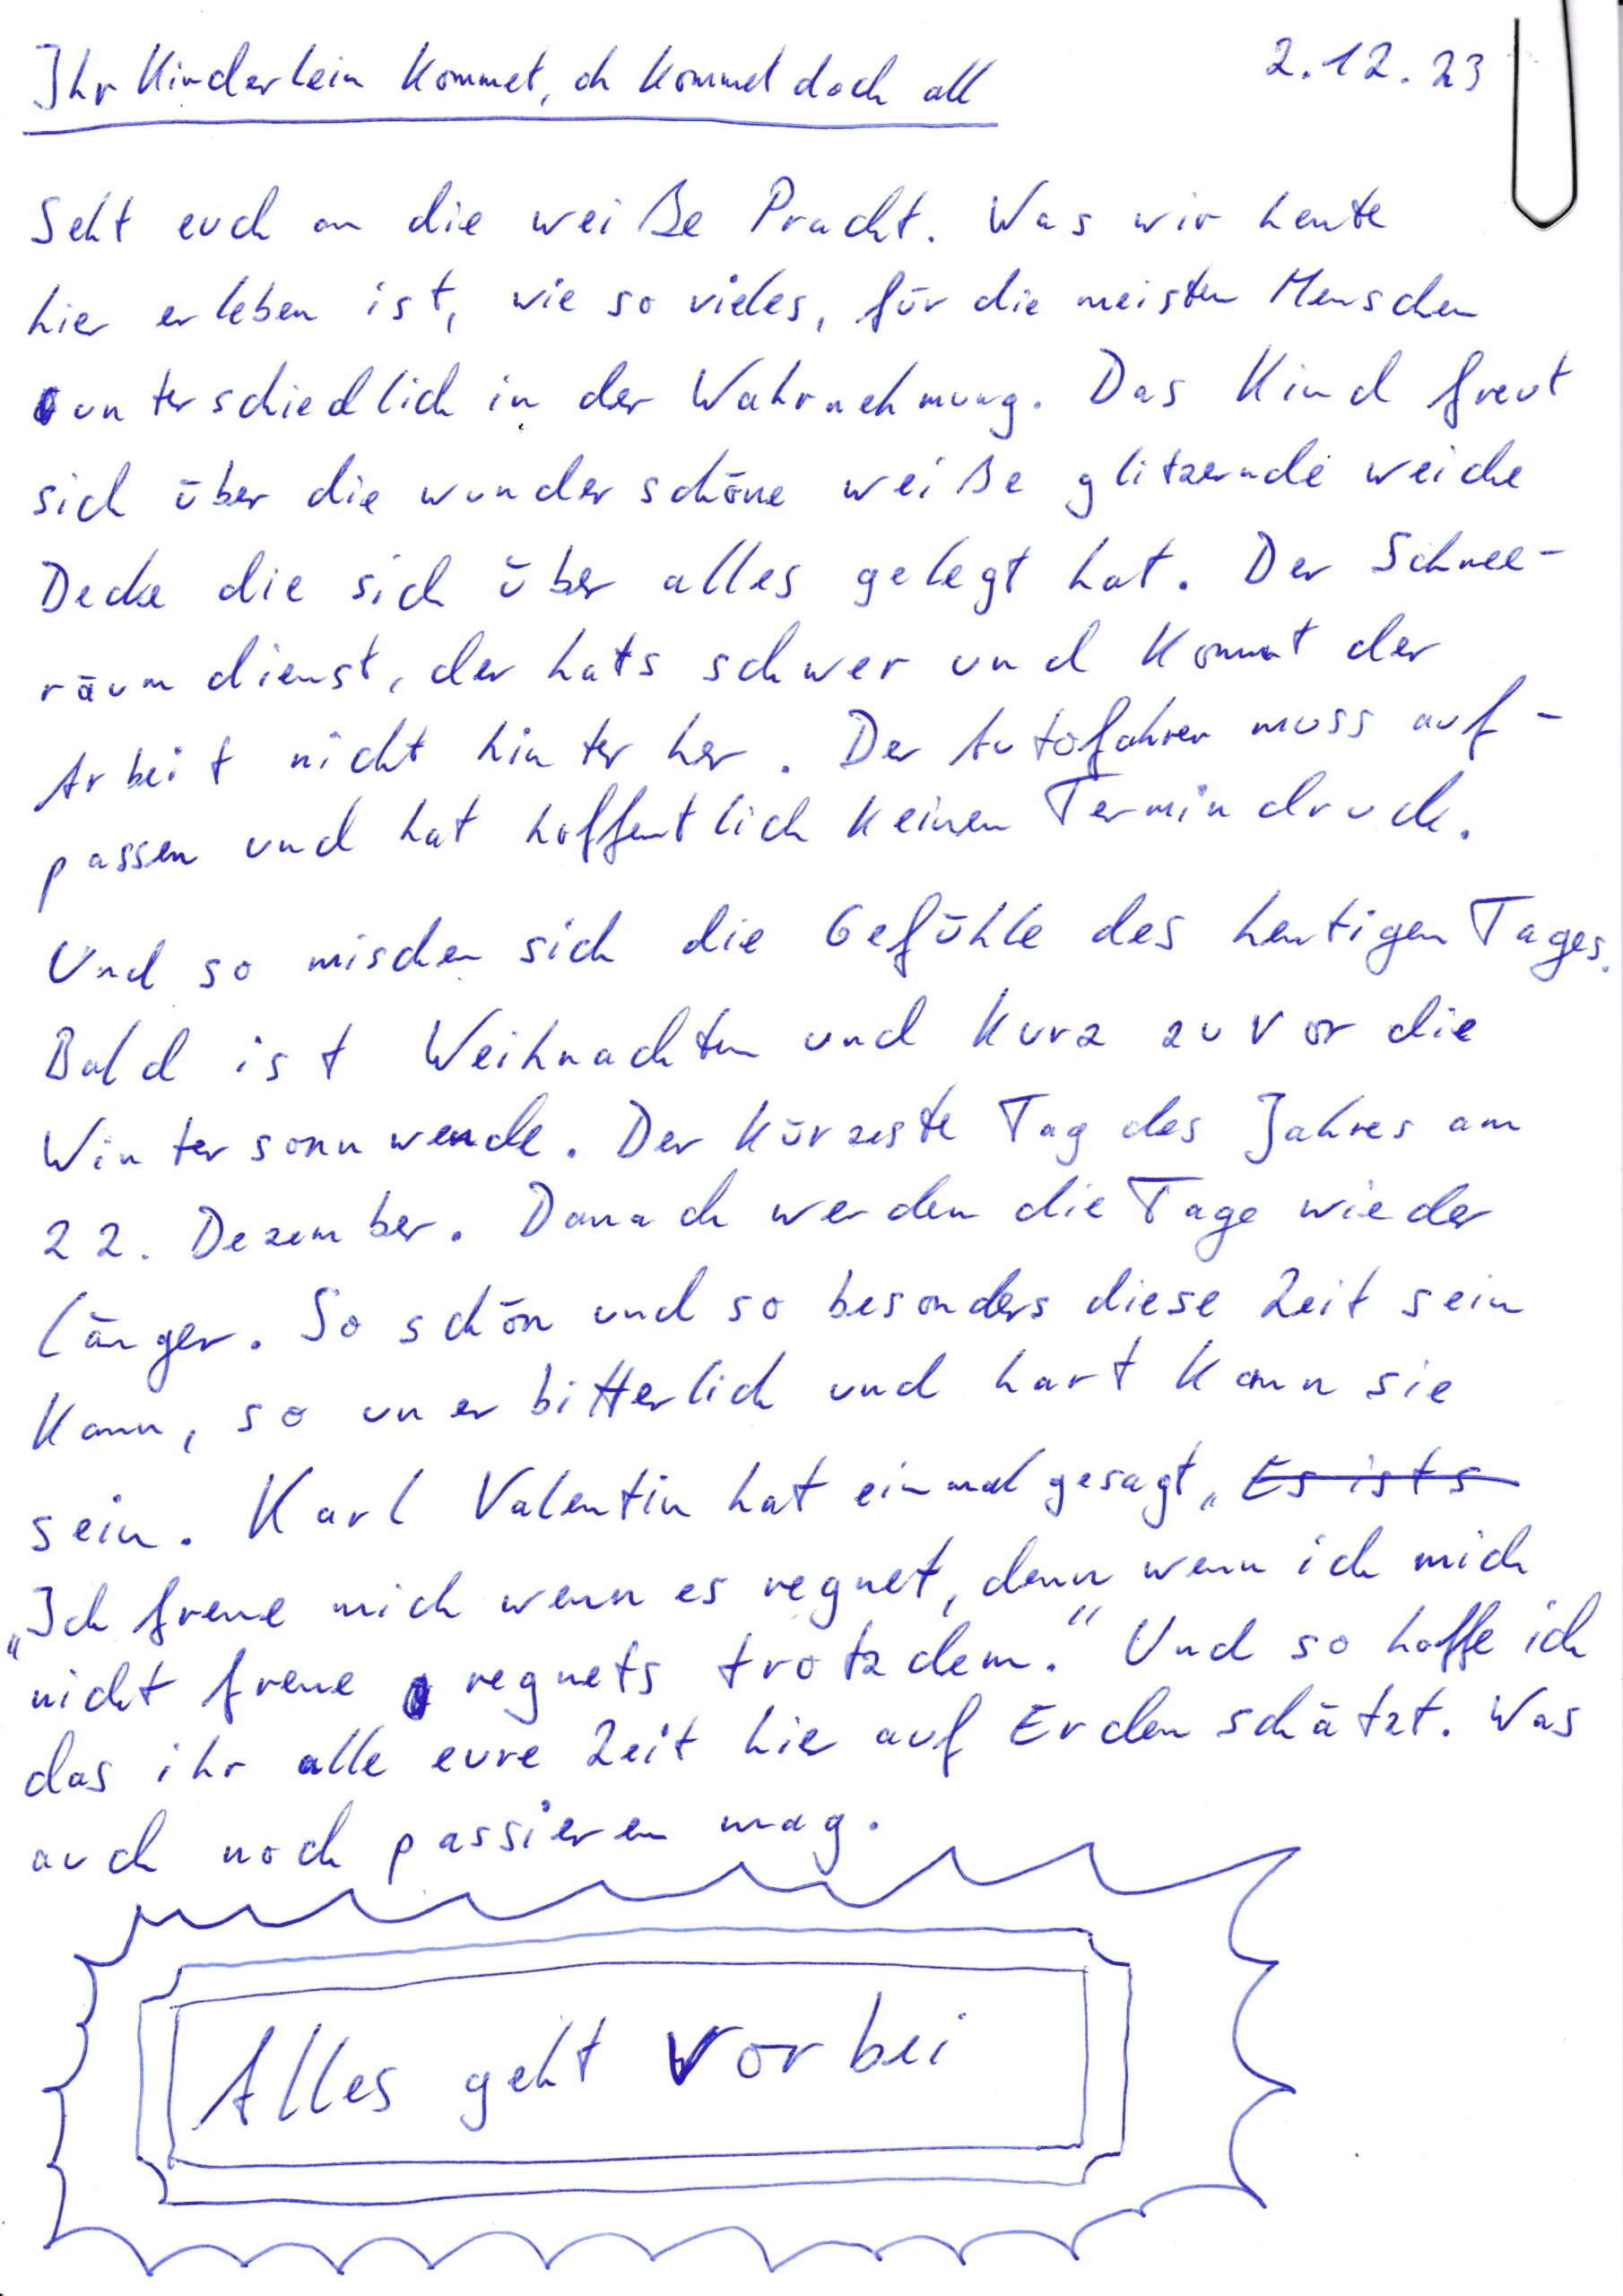 Ihr Kinderlein kommet, oh kommet doch all
2.12.23
Seht euch an die weiße Pracht. Was wir heute
hier erleben ist, wie so vieles, für die meisten Menschen
unterschiedlich in der Wahrnehmung. Das Kind freut
sich über die wunderschöne weiße glitzernde weiche
Decke die sich über alles gelegt hat. Der Schnee-
räumdienst, der hats schwer und kommt der
Arbeit nicht hinterher. Der Autofahrer muss auf-
passen und hat hoffentlich keinen Termindruck.
Und so mischen sich die Gefühle des heutigen Tages.
Bald ist Weihnachten und kurz zuvor die
Wintersonnwende. Der kürzeste Tag des Jahres am
22. Dezember. Danach werden die Tage wieder
länger. So schön und so besonders diese Zeit sein
kann, so unerbitterlich und hart kann sie
sein. Karl Valentin hat einmal gesagt „Es ist s
„Ich freue mich wenn es regnet, denn wenn ich mich
nicht freue regnets trotzdem." Und so hoffe ich
das ihr alle eure Zeit hie auf Erden schätzt. Was
auch noch passieren mag.
Alles geht vorbei